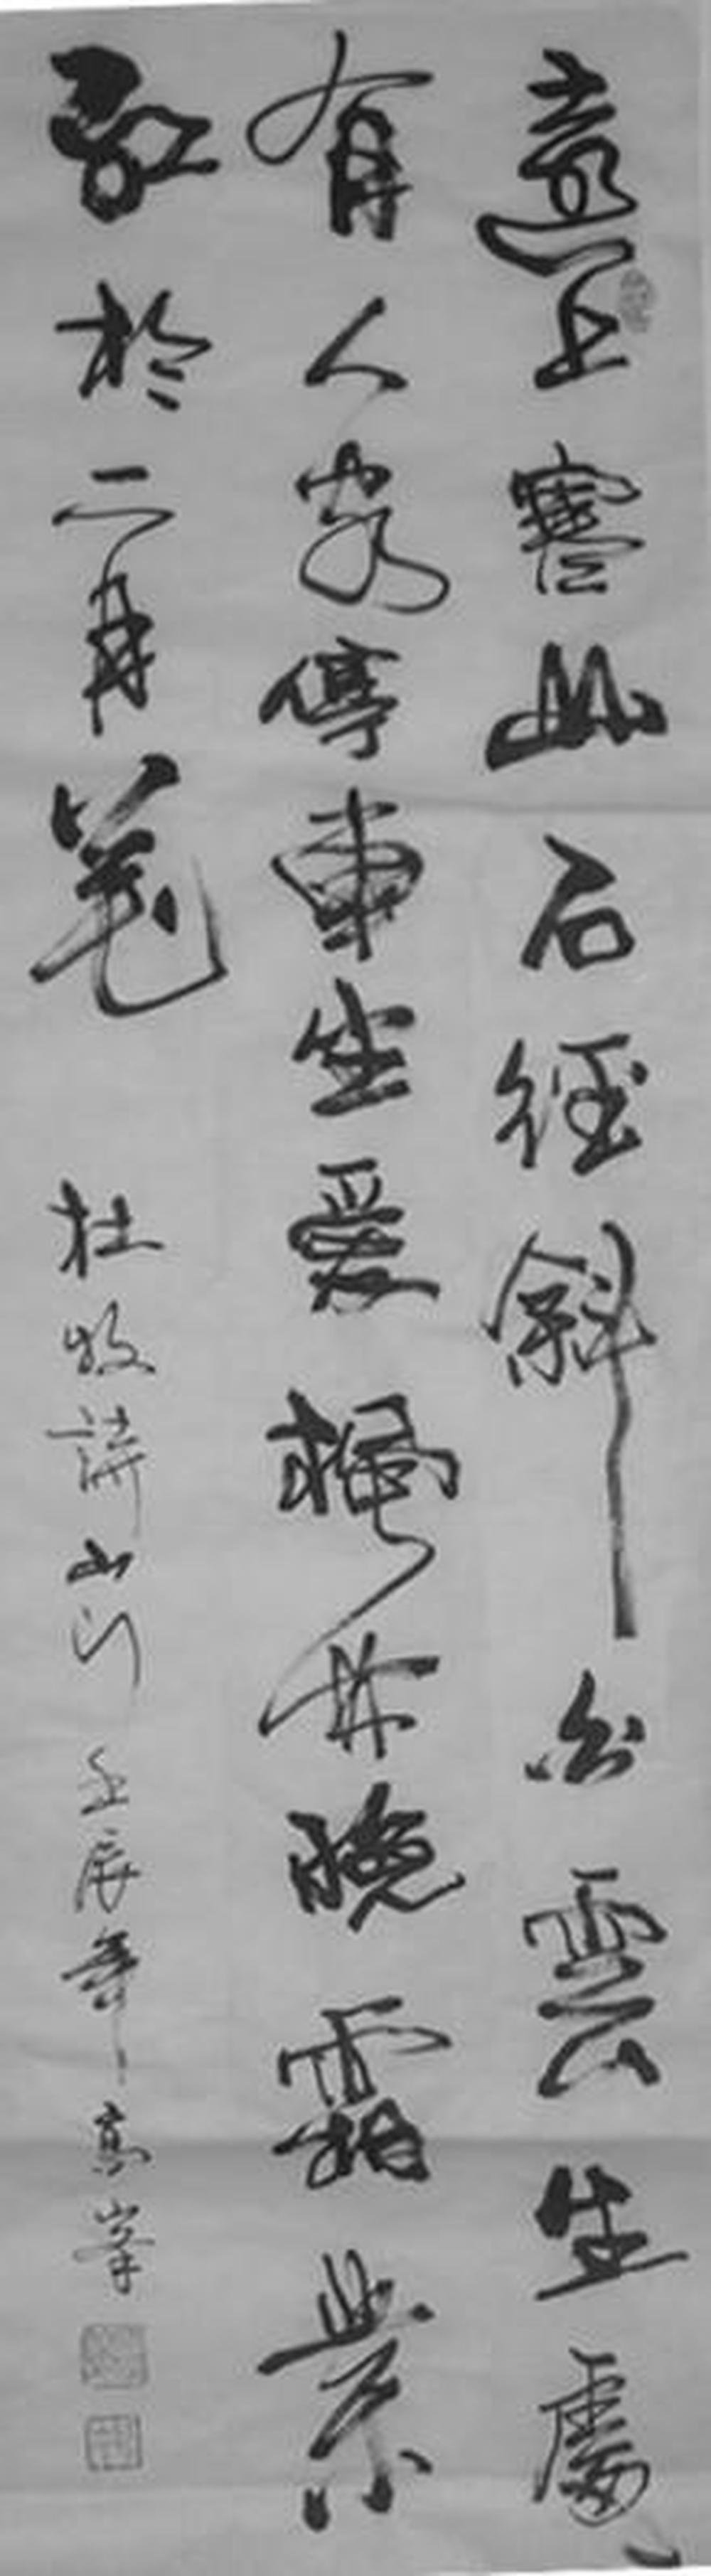 遠上寒山石徑斜白雲生處
有人家停車坐愛楓林晚霜葉
紅於二月花 杜牧詩山行 壬辰年 高峯